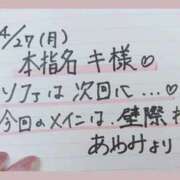 4/27(月)
本指名 キ様♡
ソファは次回に…♡
今回のメインは、壁際
あゆみより